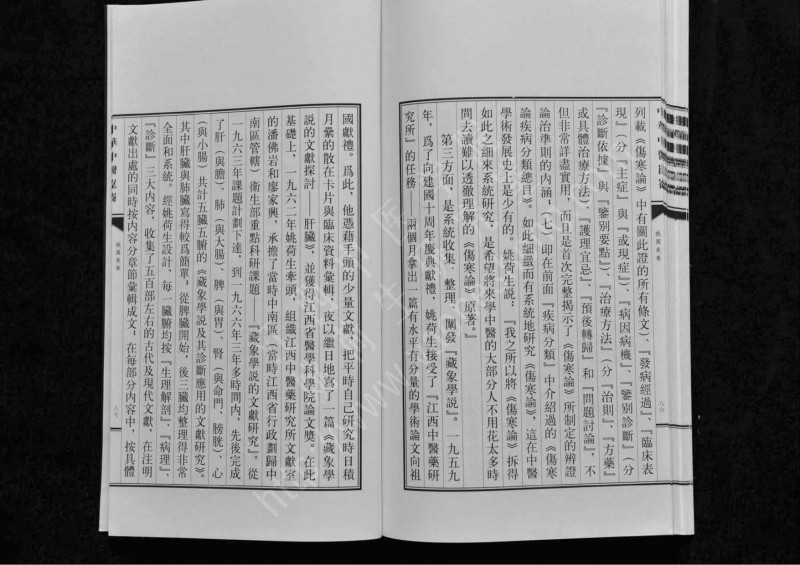 列載《傷寒論》中有關此證的所有條文）、『發病經過』、『臨床表
現』（分『主症』與『或現症』）、『病因病機』、『鑒別診斷』（分
『診斷依據』與『鑒別要點』）、『治療方法』（分『治則』、『方藥』
或具體治療方法）、『護理宜忌』、『預後轉歸』和『問題討論』，不
但非常詳盡實用，而且是首次完整揭示了《傷寒論》所制定的辨證
論治準則的內涵；（七）即在前面『疾病分類』中介紹過的《傷寒
論疾病分類總目》。如此細緻而有系統地研究《傷寒論》，這在中醫
學術發展史上是少有的。姚荷生說：『我之所以將《傷寒論》拆得
如此之細來系統研究，是希望將來學中醫的大部分人不用花太多時
間去讀難以透徹理解的《傷寒論》原著。』
第三方面，是系統收集、整理、闡發『藏象學說』。一九五九
年，爲了向建國十周年慶典獻禮，姚荷生接受了『江西中醫藥研
究所』的任務 兩個月拿出一篇有水平有分量的學術論文向祖
八六
國獻禮。爲此，他憑藉手頭的少量文獻，把平時自己研究時日積
月纍的散在卡片與臨床資料彙輯，夜以繼日地寫了一篇《藏象學
說的文獻探討——肝臟》，並獲得江西省醫學科學院論文獎。在此
基礎上，一九六二年姚荷生牽頭，組織江西中醫藥研究所文獻室
的潘佛岩和廖家興，承擔了當時中南區（當時江西省行政劃歸中
南區管轄）衛生部重點科研課題——『藏象學說的文獻研究』。從
一九六三年課題計劃下達，到一九六六年三年多時間內，先後完成
了肝（與膽）、肺（與大腸）、脾（與胃）、腎（與命門、膀胱）、心
（與小腸）共計五臟五腑的《藏象學說及其診斷應用的文獻研究》。
其中肝臟與肺臟寫得較爲簡單；從脾臟開始，後三臟均整理得非常
全面和系統。經姚荷生設計，每一臟腑均按『生理解剖』、『病理』、
『診斷』三大內容，收集了五百部左右的古代及現代文獻，在注明
文獻出處的同時按內容分章節彙輯成文。在每部分內容中，按具體
八七